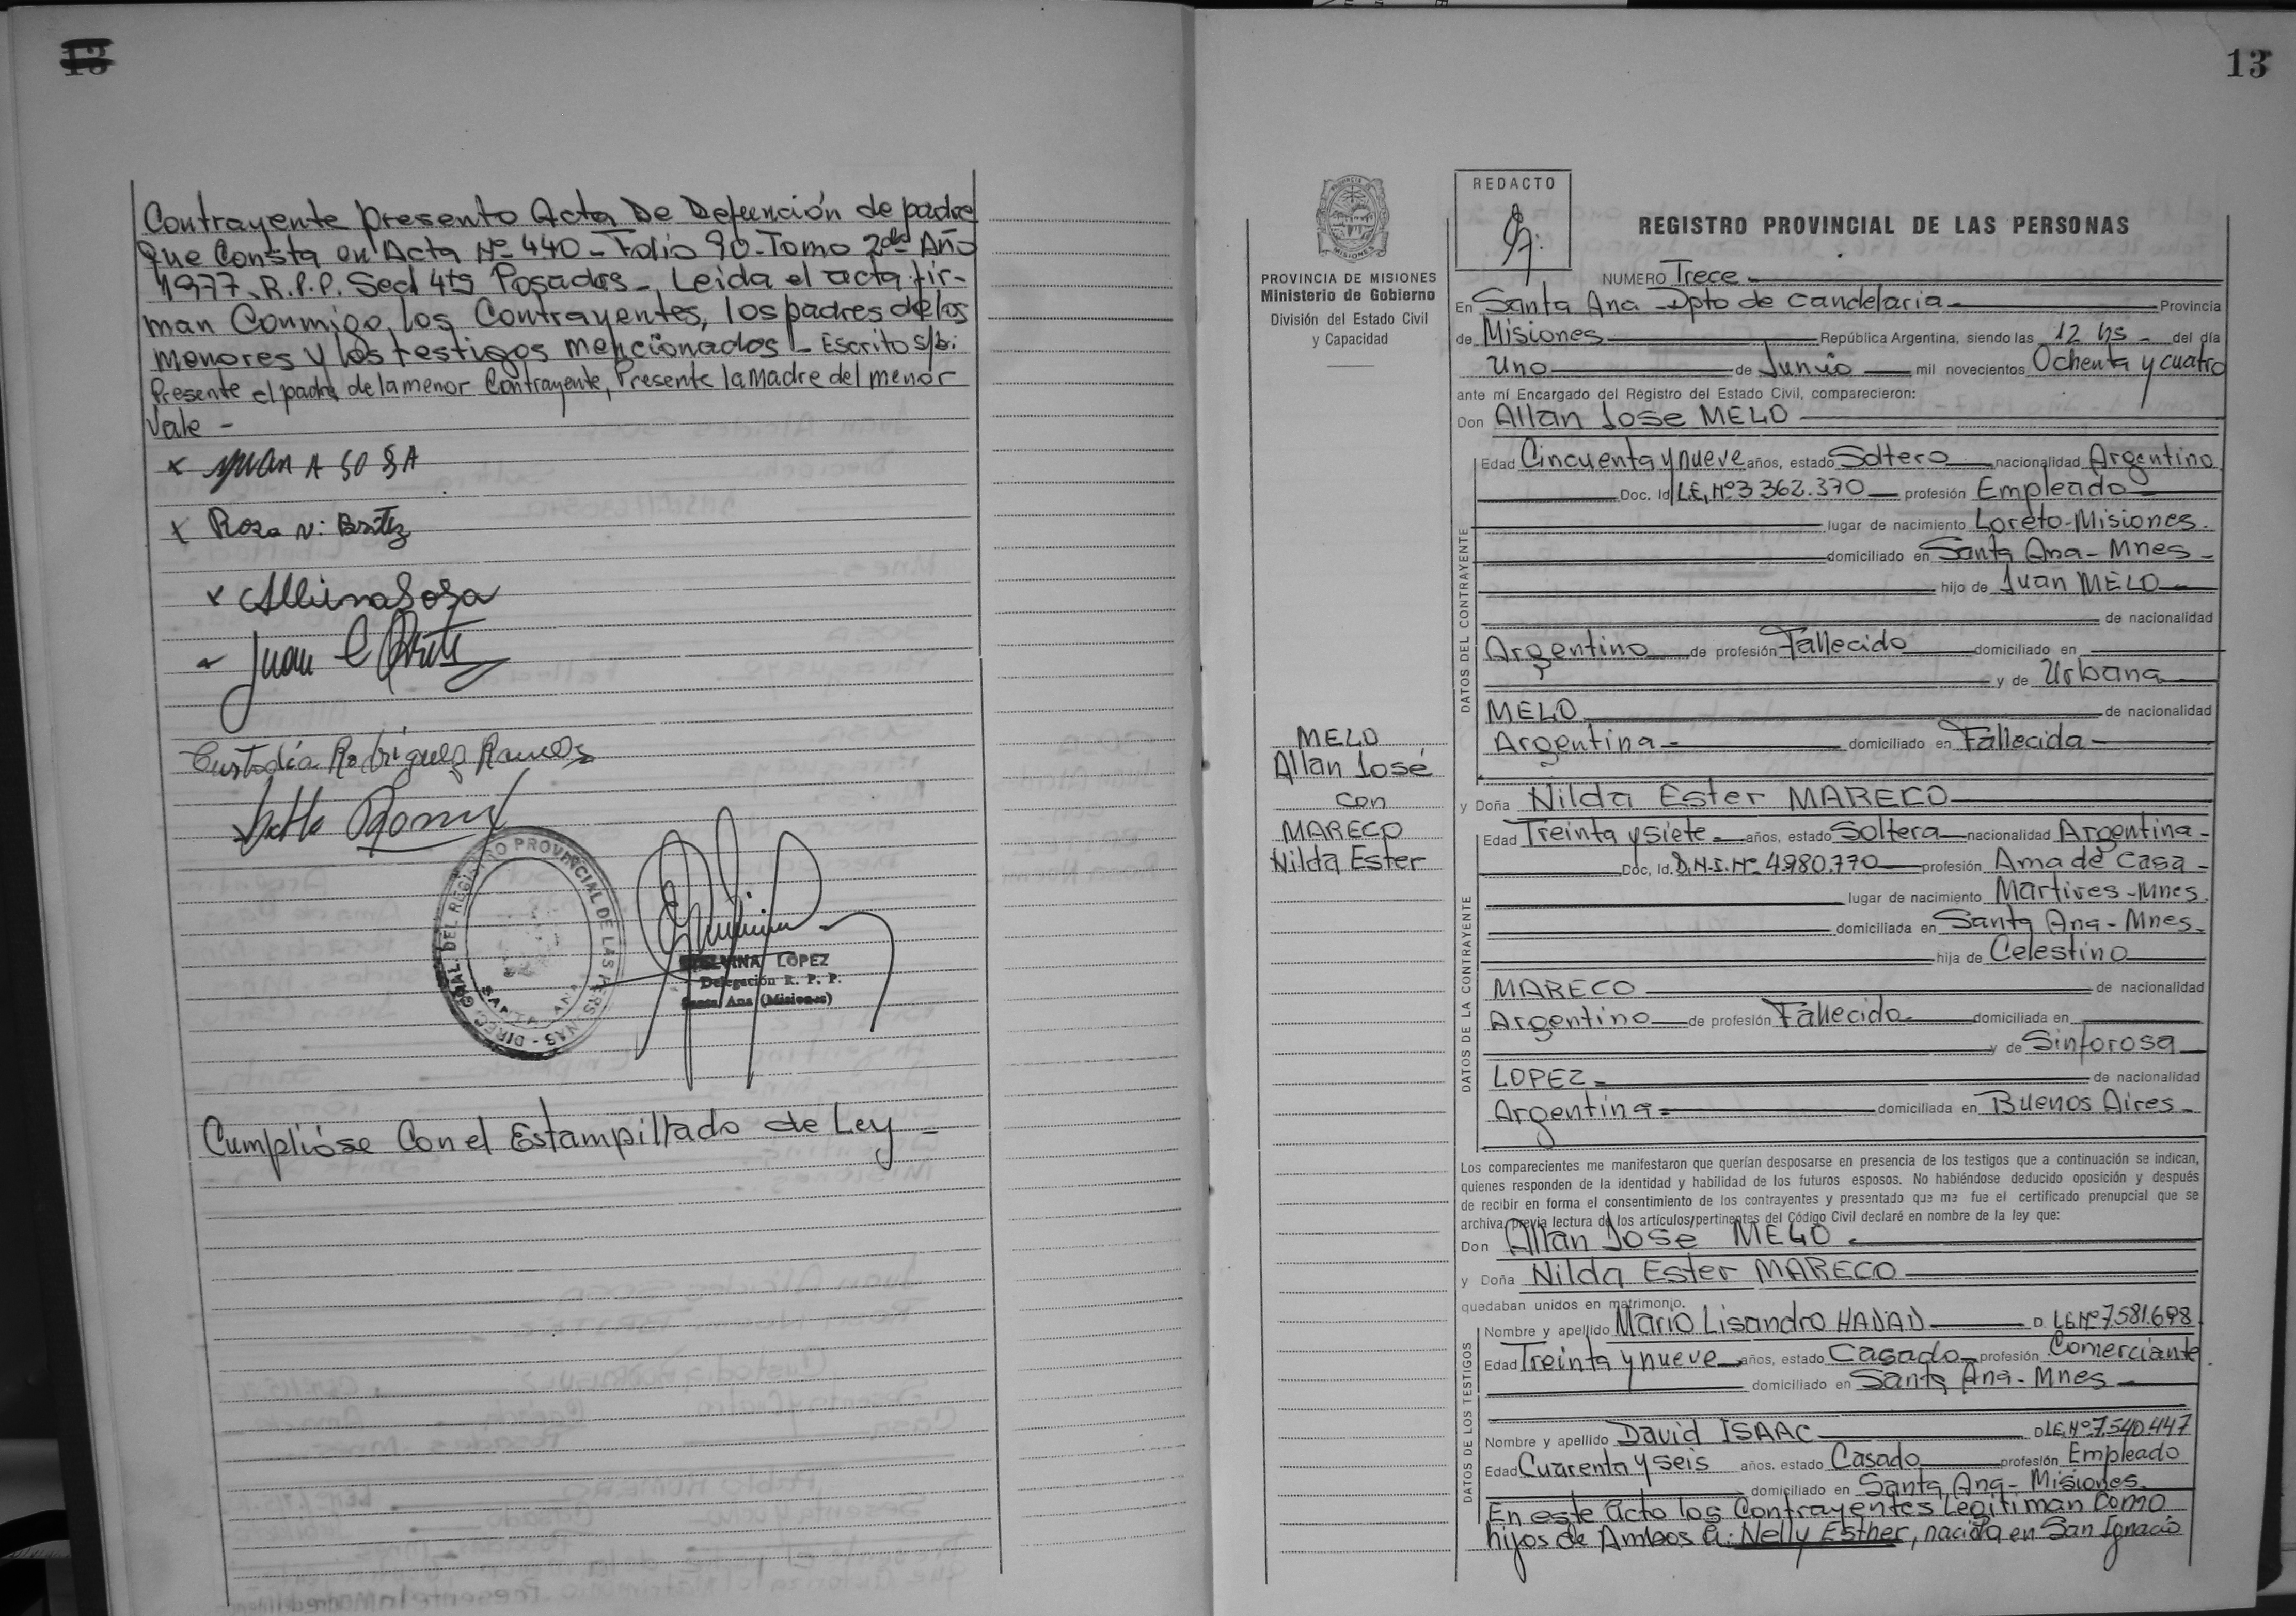 13
Contrayente presento Acta De Defunción de padre
que Consta en Acta Nº 440 - Folio 90 - Tomo 2do Año
1977. R.P.P. Secl 4ta Posadas - Leida el acta fir-
man Conmigo los Contrayentes, los padres de los
Menores y los testigos mencionados - Escrito s/b:
Presente el padre de la menor Contrayente, Presente la Madre del menor
Vale -
x Juan A SOSA
x Rosa N. Britez
x Albina Sosa
Juan C Britez
Custodia Rodriguez Ramos
DIREC. GRAL. DEL REGISTRO PROVINCIAL DE LAS PERSONAS
SANTA ANA
LOPEZ
Delegación R. P. P.
Santa Ana (Misiones)
Cumplióse Con el Estampillado de Ley -
13
PROVINCIA DE MISIONES
Ministerio de Gobierno
División del Estado Civil
y Capacidad
MELO
Allan José
con
MARECO
Nilda Ester
REDACTO
REGISTRO PROVINCIAL DE LAS PERSONAS
NUMERO Trece
En Santa Ana - Dpto de Candelaria - Provincia
de Misiones República Argentina, siendo las 12 hs - del día
Uno de Junio mil novecientos Ochenta y cuatro
ante mí Encargado del Registro del Estado Civil, comparecieron:
Don Allan Jose MELO
DATOS DEL CONTRAYENTE
Edad Cincuenta y nueve años, estado Soltero nacionalidad Argentino
Doc. Id L.E. Nº 3 362.370 profesión Empleado
lugar de nacimiento Loreto - Misiones.
domiciliado en Santa Ana - Mnes -
hijo de Juan MELO
de nacionalidad
Argentino de profesión Fallecido domiciliado en
y de Urbana
MELO de nacionalidad
Argentina - domiciliado en Fallecida -
y Doña Nilda Ester MARECO
DATOS DE LA CONTRAYENTE
Edad Treinta y siete - años, estado Soltera nacionalidad Argentina -
Doc, Id. D.N.I. Nº 4.980.770 profesión Ama de Casa -
lugar de nacimiento Martires - Mnes.
domiciliada en Santa Ana - Mnes.
hija de Celestino
MARECO de nacionalidad
Argentino de profesión Fallecido domiciliada en
y de Sinforosa
LOPEZ - de nacionalidad
Argentina - domiciliada en Buenos Aires -
Los comparecientes me manifestaron que querían desposarse en presencia de los testigos que a continuación se indican,
quienes responden de la identidad y habilidad de los futuros esposos. No habiéndose deducido oposición y después
de recibir en forma el consentimiento de los contrayentes y presentado que me fue el certificado prenupcial que se
archiva, previa lectura de los artículos pertinentes del Código Civil declaré en nombre de la ley que:
Don Allan Jose MELO -
y Doña Nilda Ester MARECO
quedaban unidos en matrimonio.
DATOS DE LOS TESTIGOS
Nombre y apellido Mario Lisandro HADAD D. L.E. Nº 7.581.698
Edad Treinta y nueve años, estado Casado profesión Comerciante
domiciliado en Santa Ana - Mnes -
Nombre y apellido David ISAAC D. L.E. Nº 7.540.447
Edad Cuarenta y seis años. estado Casado profesión Empleado
domiciliado en Santa Ana - Misiones.
En este Acto los Contrayentes Legitiman Como
hijos de Ambos a: Nelly Esther, nacida en San Ignacio